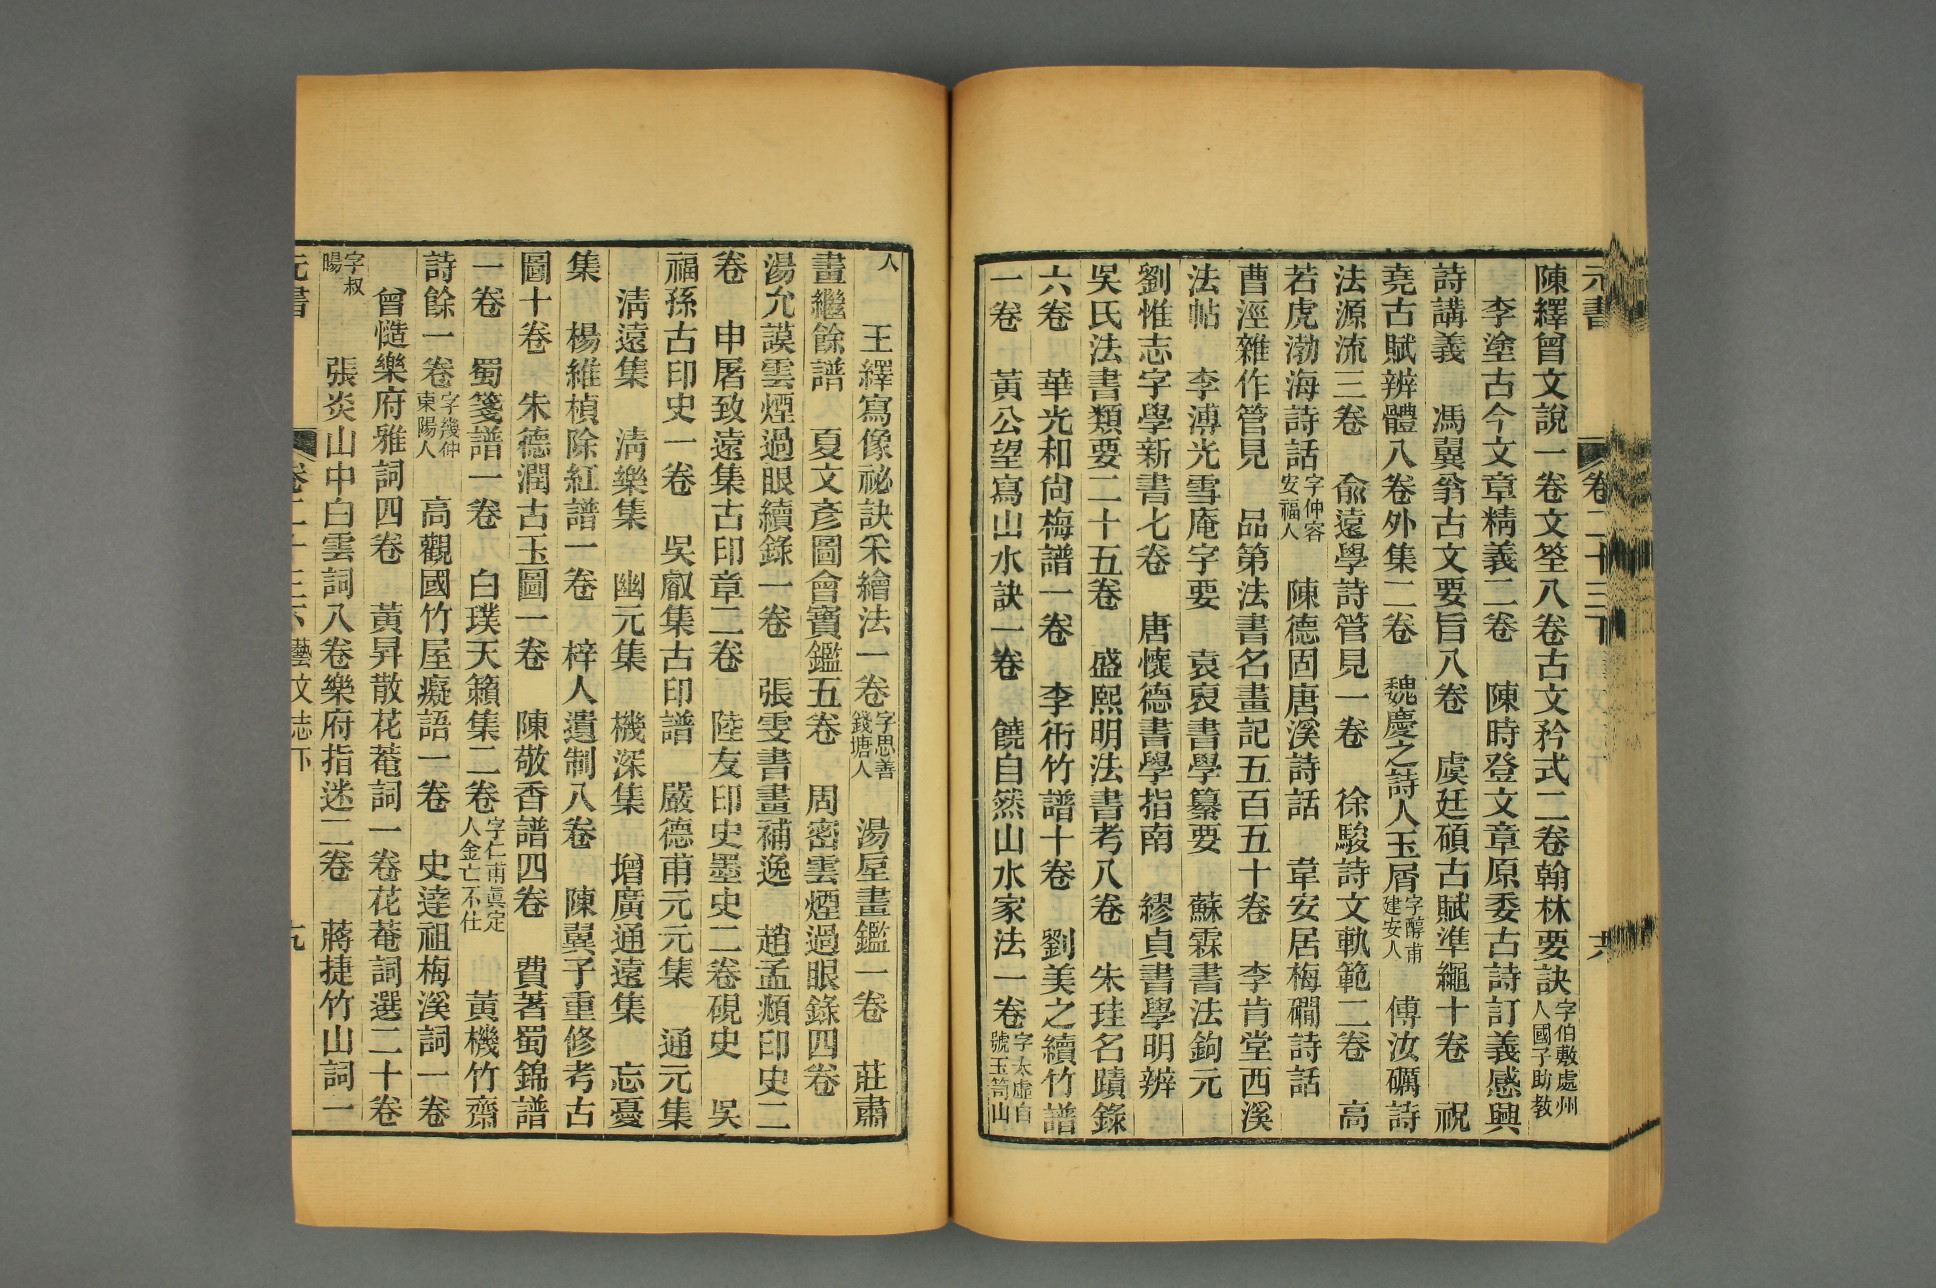 元書 卷二十三下
陳繹曾文說一卷文筌八卷古文矜式二卷翰林要訣字伯敷處州人國子助教
李塗古今文章精義二卷 陳時登文章原委古詩訂義感興
詩講義 馮翼翁古文要旨八卷 虞廷碩古賦準繩十卷 祝
堯古賦辨體八卷外集二卷 魏慶之詩人玉屑字醇甫建安人 傅汝礪詩
法源流三卷 俞遠學詩管見一卷 徐駿詩文軌範二卷 高
若虎渤海詩話字仲容安福人 陳德固唐溪詩話 韋安居梅磵詩話
曹涇雜作管見 品第法書名畫記五百五十卷 李肯堂西溪
法帖 李溥光雪庵字要 袁裒書學纂要 蘇霖書法鉤元
劉惟志字學新書七卷 唐懷德書學指南 繆貞書學明辨
吳氏法書類要二十五卷 盛熙明法書考八卷 朱珪名蹟錄
六卷 華光和尙梅譜一卷 李衎竹譜十卷 劉美之續竹譜
一卷 黃公望寫山水訣一卷 饒自然山水家法一卷字太虛自號玉笥山
人 王繹寫像祕訣采繪法一卷字思善錢塘人 湯垕畫鑑一卷 莊肅
畫繼餘譜 夏文彥圖會寶鑑五卷 周密雲煙過眼錄四卷
湯允謨雲煙過眼續錄一卷 張雯書畫補逸 趙孟頫印史二
卷 申屠致遠集古印章二卷 陸友印史墨史二卷硯史 吳
福孫古印史一卷 吳叡集古印譜 嚴德甫元元集 通元集
淸遠集 淸樂集 幽元集 機深集 增廣通遠集 忘憂
集 楊維楨除紅譜一卷 梓人遺制八卷 陳翼子重修考古
圖十卷 朱德潤古玉圖一卷 陳敬香譜四卷 費著蜀錦譜
一卷 蜀箋譜一卷 白璞天籟集二卷字仁甫眞定人金亡不仕 黃機竹齋
詩餘一卷字幾仲東陽人 高觀國竹屋癡語一卷 史達祖梅溪詞一卷
曾慥樂府雅詞四卷 黃昇散花菴詞一卷花菴詞選二十卷
字叔暘 張炎山中白雲詞八卷樂府指迷二卷 蔣捷竹山詞一
元書 卷二十三下 藝文志下 九